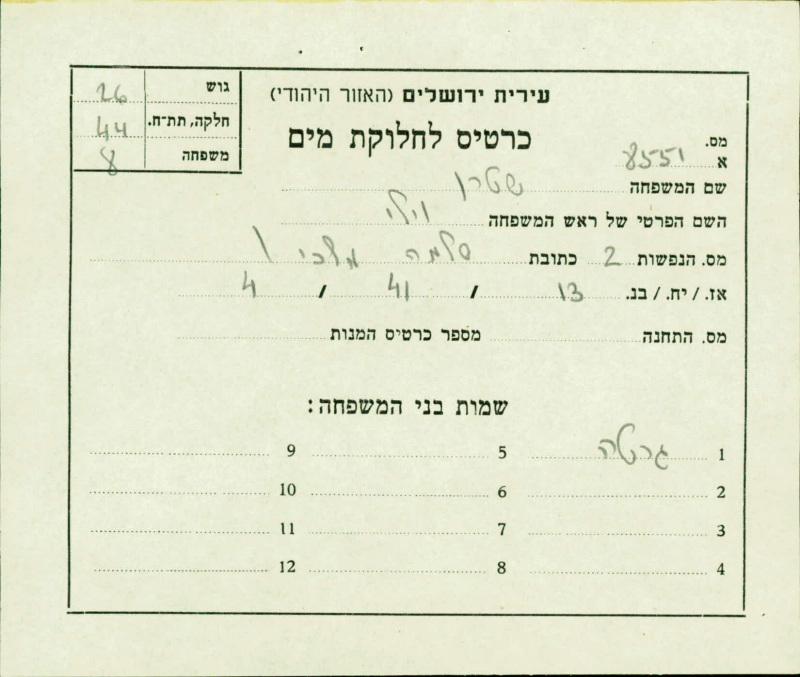 עירית ירושלים (האזור היהודי)
כרטיס לחלוקת מים
גוש 26
חלקה, תת-ח. 44
משפחה 8
מס.
א 8551
שם המשפחה שטרן
השם הפרטי של ראש המשפחה וילי
מס. הנפשות 2 כתובת שלמה מלכי 1
אז. / יח. / בנ. 13 / 41 / 4
מס. התחנה מספר כרטיס המנות
שמות בני המשפחה:
1 גרטה 5 9
2 6 10
3 7 11
4 8 12